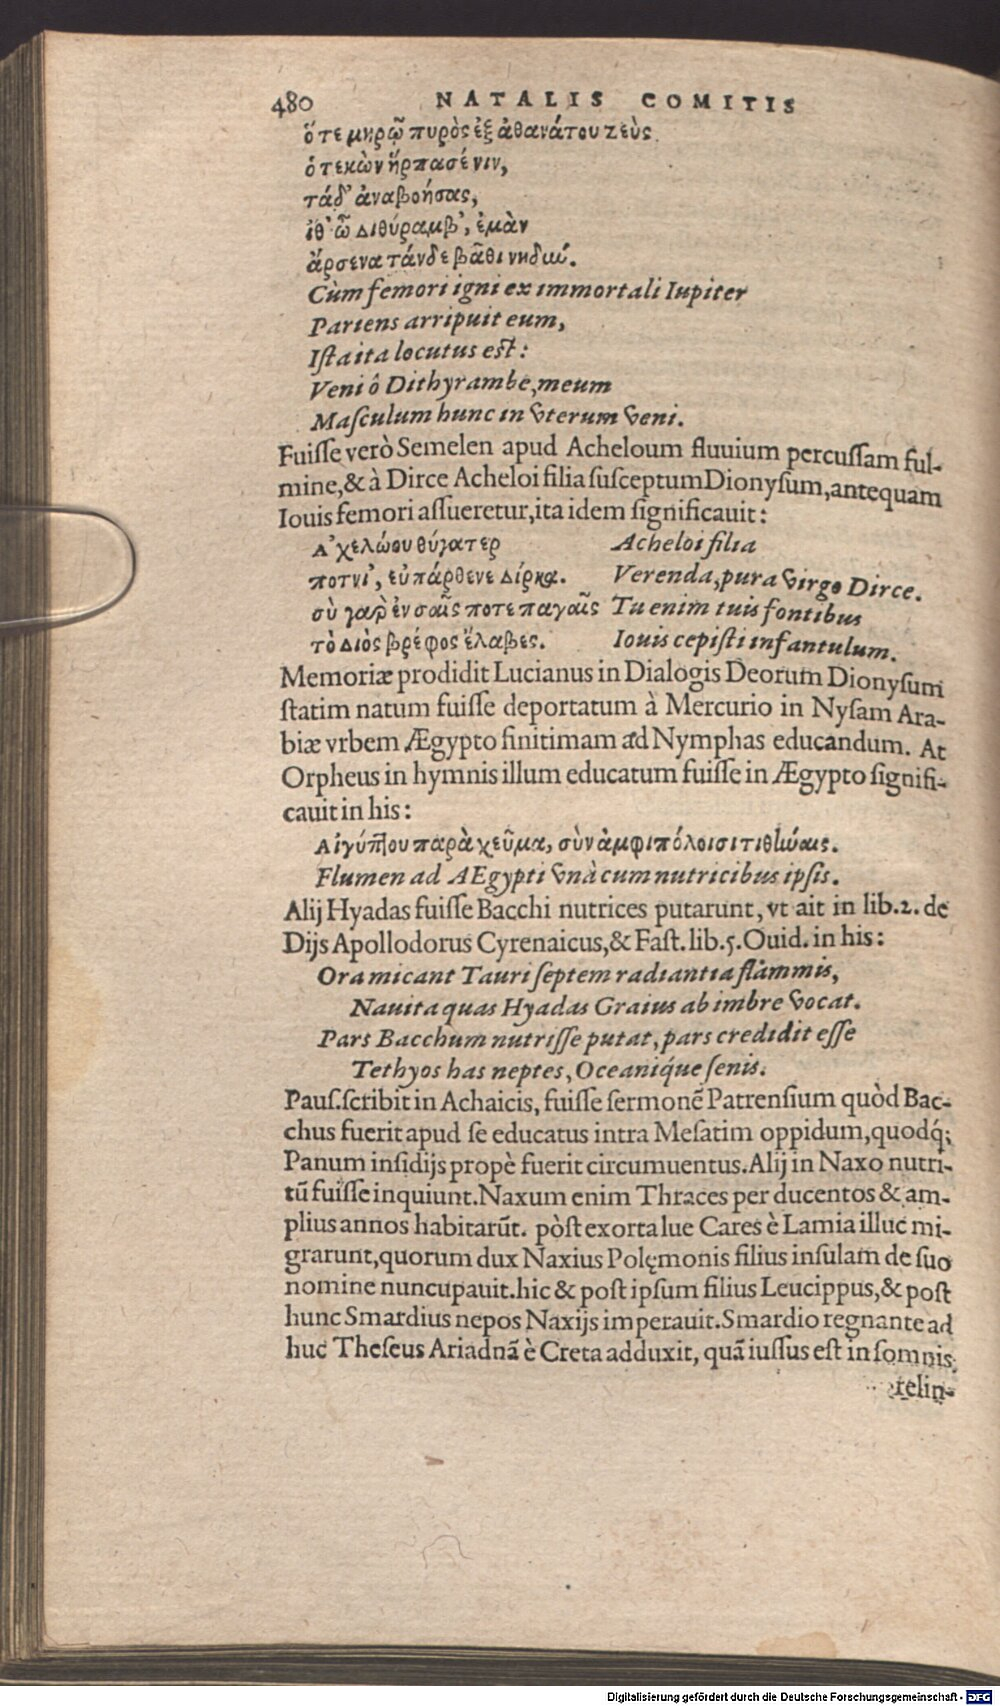 480 NATALIS COMITIS
ὅτε μηρῷ πυρὸς ἐξ ἀθανάτου ζεὺς
ὁ τεκὼν ἥρπασέ νιν,
τάδ' ἀναβοήσας,
ἴθ' ὦ διθύραμβ', ἐμὰν
ἄρσενα τάνδε βᾶθι νηδύν.
Cùm femori igni ex immortali Iupiter
Pariens arripuit eum,
Iſta ita locutus eſt:
Veni ô Dithyrambe, meum
Maſculum hunc in vterum veni.
Fuiſſe verò Semelen apud Acheloum fluuium percuſſam ful-
mine, & à Dirce Acheloi filia ſuſceptum Dionyſum, antequam
Iouis femori aſſueretur, ita idem ſignificauit:
Ἀχελώου θύγατερ Acheloi filia
ποτνι', εὐπάρθενε Δίρκα. Verenda, pura virgo Dirce.
σὺ γὰρ ἐν σαῖς ποτε παγαῖς Tu enim tuis fontibus
τὸ Διὸς βρέφος ἔλαβες. Iouis cepiſti infantulum.
Memoriæ prodidit Lucianus in Dialogis Deorum Dionyſum
ſtatim natum fuiſſe deportatum à Mercurio in Nyſam Ara-
biæ vrbem Ægypto finitimam ad Nymphas educandum. At
Orpheus in hymnis illum educatum fuiſſe in Ægypto ſignifi-
cauit in his:
Αἰγύπτου παρὰ χεῦμα, σὺν ἀμφιπόλοισι τιθήναις.
Flumen ad AEgypti vnà cum nutricibus ipſis.
Alij Hyadas fuiſſe Bacchi nutrices putarunt, vt ait in lib. 2. de
Dijs Apollodorus Cyrenaicus, & Faſt. lib. 5. Ouid. in his:
Ora micant Tauri ſeptem radiantia flammis,
Nauita quas Hyadas Graius ab imbre vocat.
Pars Bacchum nutriſſe putat, pars credidit eſſe
Tethyos has neptes, Oceaniq́ue ſenis.
Pauſ. ſcribit in Achaicis, fuiſſe ſermonē Patrenſium quòd Bac-
chus fuerit apud ſe educatus intra Meſatim oppidum, quodq́;
Panum inſidijs propè fuerit circumuentus. Alij in Naxo nutri-
tū fuiſſe inquiunt. Naxum enim Thraces per ducentos & am-
plius annos habitarūt. pòſt exorta lue Cares è Lamia illuc mi-
grarunt, quorum dux Naxius Polęmonis filius inſulam de ſuo
nomine nuncupauit. hic & poſt ipſum filius Leucippus, & poſt
hunc Smardius nepos Naxijs imperauit. Smardio regnante ad
huc Theſeus Ariadnā è Creta adduxit, quā iuſſus eſt in ſomnis
relin-
Digitalisierung gefördert durch die Deutsche Forschungsgemeinschaft - DFG